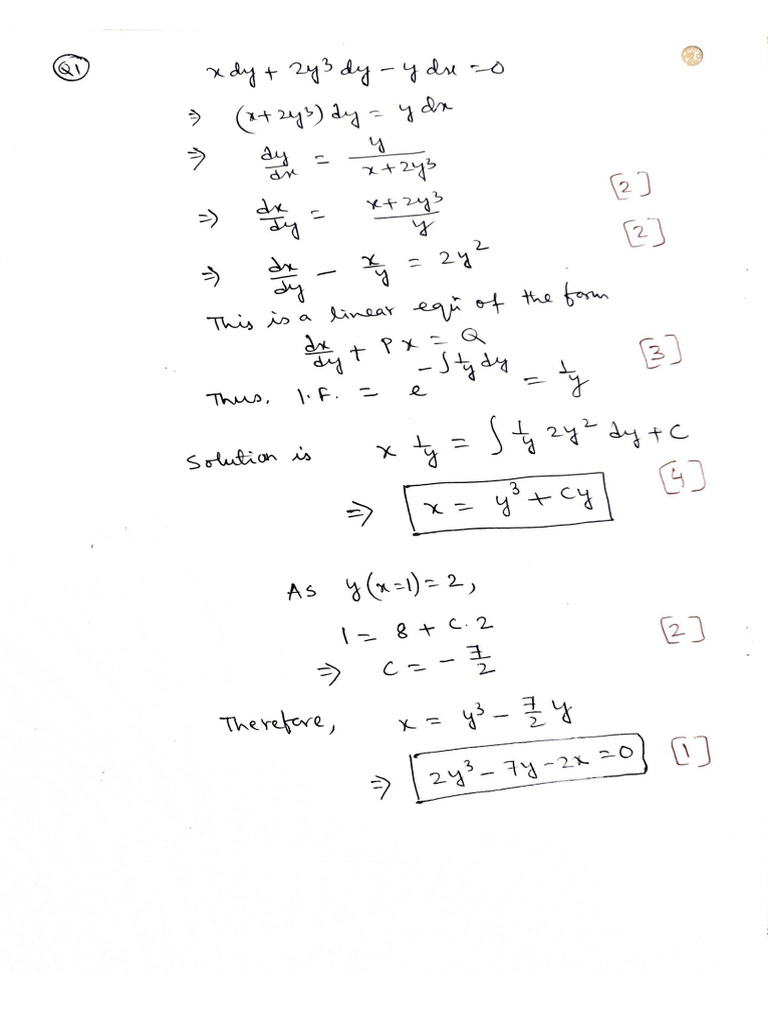 Q1 x dy + 2y³ dy − y dx = 0
⇒ (x + 2y³) dy = y dx
⇒ dy/dx = y/(x + 2y³)
⇒ dx/dy = (x + 2y³)/y [2]
⇒ dx/dy − x/y = 2y² [2]
This is a linear eqⁿ of the form
dx/dy + Px = Q
Thus, I.F. = e^(−∫ 1/y dy) = 1/y [3]
Solution is x 1/y = ∫ 1/y 2y² dy + C
⇒ x = y³ + Cy [4]
As y(x=1) = 2,
1 = 8 + C. 2 [2]
⇒ C = − 7/2
Therefore, x = y³ − 7/2 y
⇒ 2y³ − 7y − 2x = 0 [1]